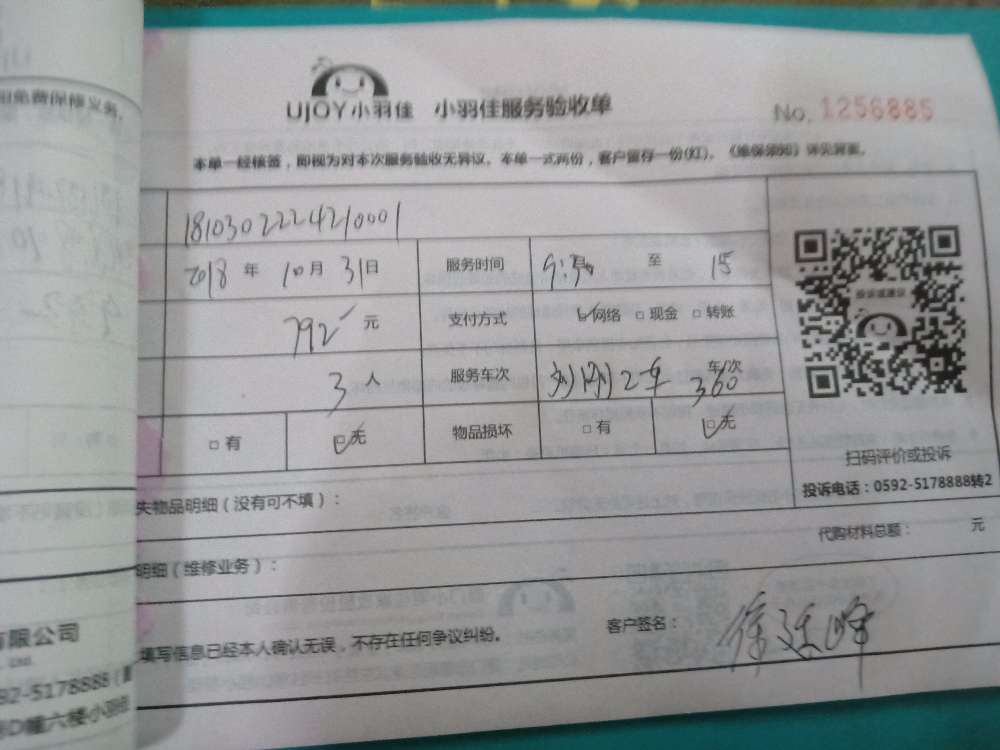 UJOY小羽佳 小羽佳服务验收单 No. 1256885
本单一经核签，即视为对本次服务验收无异议。本单一式两份，客户留存一份(红)。《维保须知》详见背面。
1810302224210001
2018 年 10 月 31 日 服务时间 9:30 至 15
792 元 支付方式 ☑网络 □现金 □转账
3 人 服务车次 刘刚2车 360 车/次
□有 ☑无 物品损坏 □有 ☑无
投诉或建议
扫码评价或投诉
投诉电话：0592-5178888转2
失物品明细（没有可不填）：
代购材料总额： 元
明细（维修业务）：
填写信息已经本人确认无误，不存在任何争议纠纷。 客户签名： 徐廷峰
免费保修义务。
有限公司
Ltd.
92-5178888
D幢六楼小羽佳